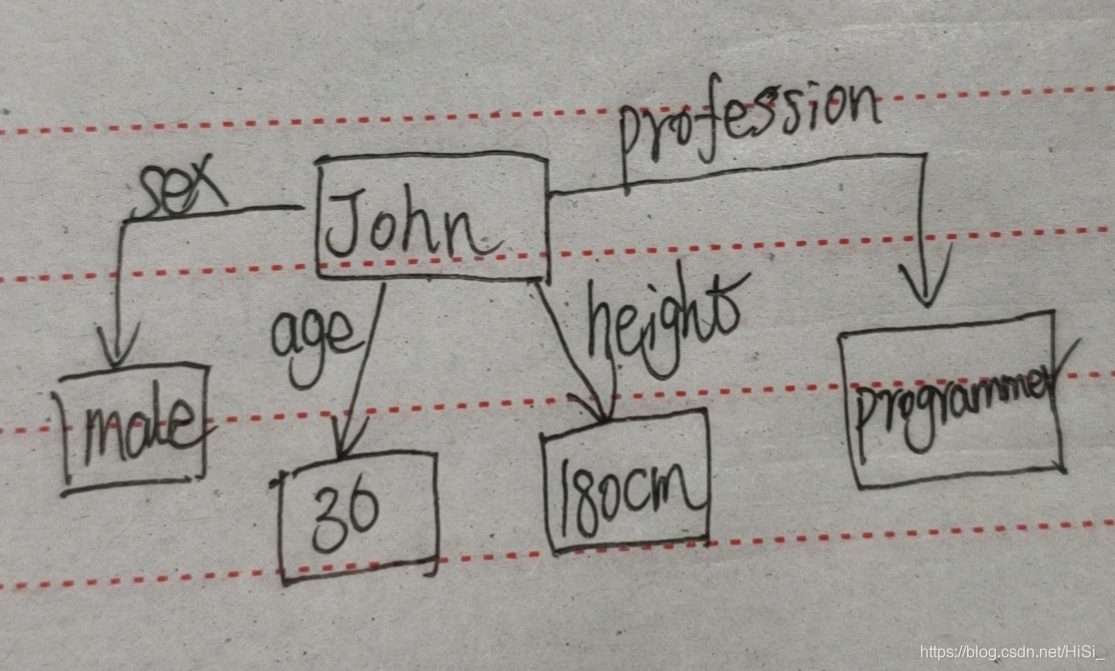 profession
sex
John
age
height
male
36
180cm
programmer
https://blog.csdn.net/HiSi_